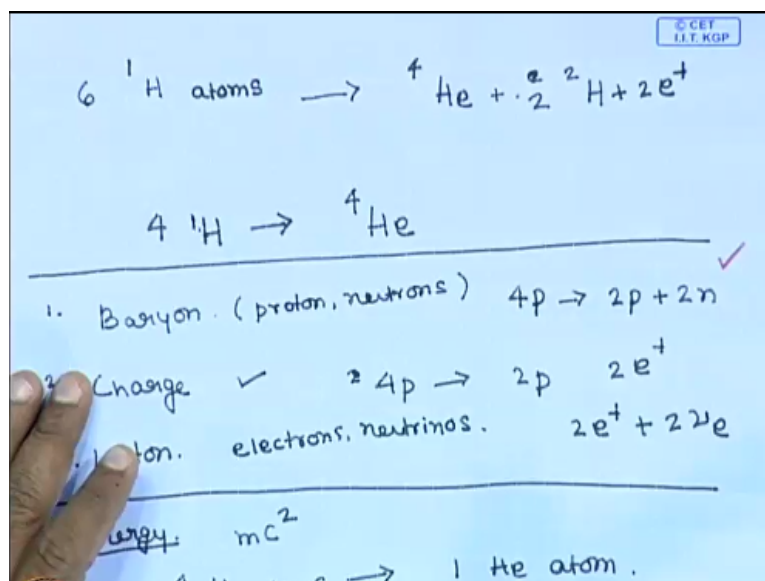 © CET
I.I.T. KGP
6 ¹H atoms → ⁴He + 2 ²H + 2e⁺
4 ¹H → ⁴He
1. Baryon. (proton, neutrons) 4p → 2p + 2n ✓
2. Charge ✓ 4p → 2p 2e⁺
electrons, neutrinos. 2e⁺ + 2νe
mc²
→ 1 He atom.